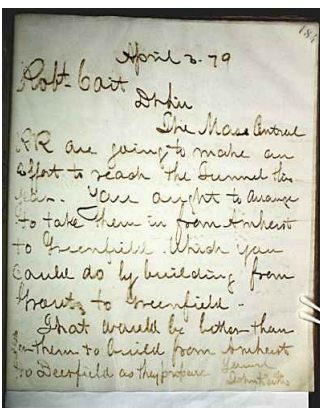 184
April 3-79
Robt Cait
D Sir
The Mass Central
RR are going to make an
effort to reach the Tunnel this
year. You aught to arrange
to take them in from Amherst
to Greenfield. Which you
could do by building from
Grouts to Greenfield -
That would be better than
for them to build from Amherst
to Deerfield as they propose